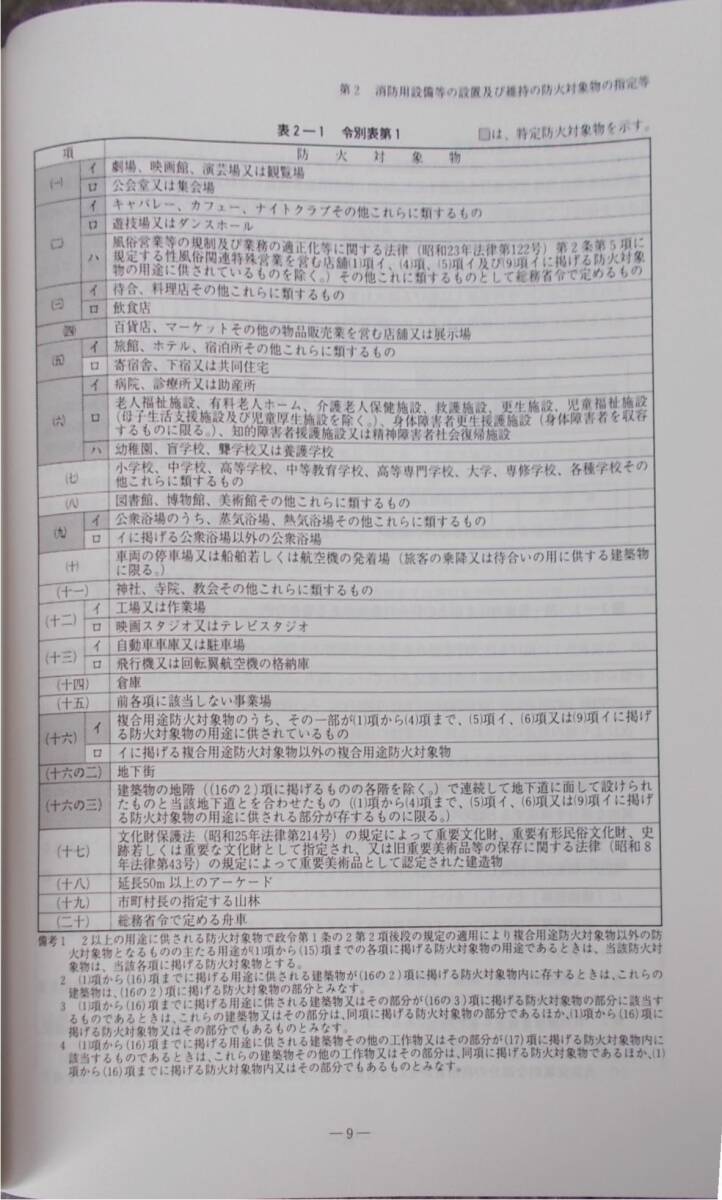 第2　消防用設備等の設置及び維持の防火対象物の指定等
表2―1　令別表第1
は、特定防火対象物を示す。
項　防火対象物
(一)　イ　劇場、映画館、演芸場又は観覧場
ロ　公会堂又は集会場
(二)　イ　キャバレー、カフェー、ナイトクラブその他これらに類するもの
ロ　遊技場又はダンスホール
ハ　風俗営業等の規制及び業務の適正化等に関する法律（昭和23年法律第122号）第2条第5項に
規定する性風俗関連特殊営業を営む店舗((1)項イ、(4)項、(5)項イ及び(9)項イに掲げる防火対象
物の用途に供されているものを除く。）その他これに類するものとして総務省令で定めるもの
(三)　イ　待合、料理店その他これらに類するもの
ロ　飲食店
(四)　百貨店、マーケットその他の物品販売業を営む店舗又は展示場
(五)　イ　旅館、ホテル、宿泊所その他これらに類するもの
ロ　寄宿舎、下宿又は共同住宅
(六)　イ　病院、診療所又は助産所
ロ　老人福祉施設、有料老人ホーム、介護老人保健施設、救護施設、更生施設、児童福祉施設
（母子生活支援施設及び児童厚生施設を除く。）、身体障害者更生援護施設（身体障害者を収容
するものに限る。）、知的障害者援護施設又は精神障害者社会復帰施設
ハ　幼稚園、盲学校、聾学校又は養護学校
(七)　小学校、中学校、高等学校、中等教育学校、高等専門学校、大学、専修学校、各種学校その
他これらに類するもの
(八)　図書館、博物館、美術館その他これらに類するもの
(九)　イ　公衆浴場のうち、蒸気浴場、熱気浴場その他これらに類するもの
ロ　イに掲げる公衆浴場以外の公衆浴場
(十)　車両の停車場又は船舶若しくは航空機の発着場（旅客の乗降又は待合いの用に供する建築物
に限る。）
(十一)　神社、寺院、教会その他これらに類するもの
(十二)　イ　工場又は作業場
ロ　映画スタジオ又はテレビスタジオ
(十三)　イ　自動車車庫又は駐車場
ロ　飛行機又は回転翼航空機の格納庫
(十四)　倉庫
(十五)　前各項に該当しない事業場
(十六)　イ　複合用途防火対象物のうち、その一部が(1)項から(4)項まで、(5)項イ、(6)項又は(9)項イに掲げ
る防火対象物の用途に供されているもの
ロ　イに掲げる複合用途防火対象物以外の複合用途防火対象物
(十六の二)　地下街
(十六の三)　建築物の地階（(16の2)項に掲げるものの各階を除く。）で連続して地下道に面して設けられ
たものと当該地下道とを合わせたもの（(1)項から(4)項まで、(5)項イ、(6)項又は(9)項イに掲げ
る防火対象物の用途に供される部分が存するものに限る。）
(十七)　文化財保護法（昭和25年法律第214号）の規定によって重要文化財、重要有形民俗文化財、史
跡若しくは重要な文化財として指定され、又は旧重要美術品等の保存に関する法律（昭和8
年法律第43号）の規定によって重要美術品として認定された建造物
(十八)　延長50m以上のアーケード
(十九)　市町村長の指定する山林
(二十)　総務省令で定める舟車
備考1　2以上の用途に供される防火対象物で政令第1条の2第2項後段の規定の適用により複合用途防火対象物以外の防
火対象物となるものの主たる用途が(1)から(15)項までの各項に掲げる防火対象物の用途であるときは、当該防火対
象物は、当該各項に掲げる防火対象物とする。
2　(1)から(16)項までに掲げる用途に供される建築物が(16の2)項に掲げる防火対象物内に存するときは、これらの
建築物は、(16の2)項に掲げる防火対象物の部分とみなす。
3　(1)から(16)項までに掲げる用途に供される建築物又はその部分が(16の3)項に掲げる防火対象物の部分に該当す
るものであるときは、これらの建築物又はその部分は、同項に掲げる防火対象物の部分であるほか、(1)から(16)項に
掲げる防火対象物又はその部分でもあるものとみなす。
4　(1)から(16)項までに掲げる用途に供される建築物その他の工作物又はその部分が(17)項に掲げる防火対象物内に
該当するものであるときは、これらの建築物その他の工作物又はその部分は、同項に掲げる防火対象物であるほか、(1)
項から(16)項までに掲げる防火対象物内又はその部分でもあるものとみなす。
―9―